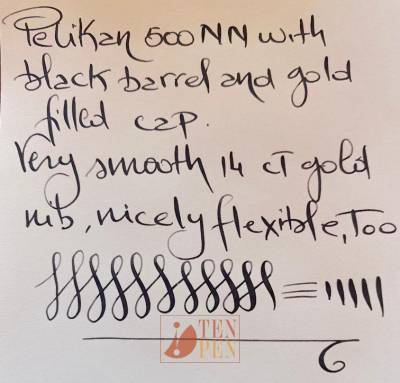 Pelikan 500NN with
black barrel and gold
filled cap.
Very smooth 14 ct gold
nib, nicely flexible, Too
TEN
PEN